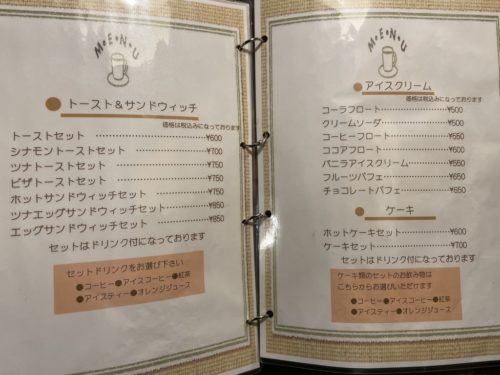 M・E・N・U
トースト＆サンドウィッチ
価格は税込みになっております
トーストセット ¥600
シナモントーストセット ¥700
ツナトーストセット ¥750
ピザトーストセット ¥750
ホットサンドウィッチセット ¥750
ツナエッグサンドウィッチセット ¥850
エッグサンドウィッチセット ¥850
セットはドリンク付になっております
セットドリンクをお選び下さい
●コーヒー●アイスコーヒー●紅茶
●アイスティー●オレンジジュース
M・E・N・U
アイスクリーム
価格は税込みになっております
コーラフロート ¥500
クリームソーダ ¥500
コーヒーフロート ¥550
ココアフロート ¥600
バニラアイスクリーム ¥550
フルーツパフェ ¥650
チョコレートパフェ ¥650
ケーキ
ホットケーキセット ¥600
ケーキセット ¥700
セットはドリンク付になっております
ケーキ類のセットのお飲み物は
こちらからお選びいただけます
●コーヒー●アイスコーヒー●紅茶
●アイスティー●オレンジジュース